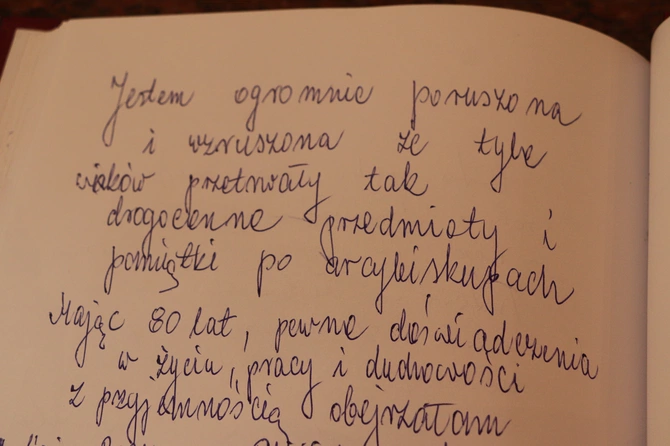 Jestem ogromnie poruszona
i wzruszona że tyle
wieków przetrwały tak
drogocenne przedmioty i
pamiątki po arcybiskupach
Mając 80 lat, pewne doświadczenia
w życiu, pracy i duchowości
z przyjemnością obejrzałam